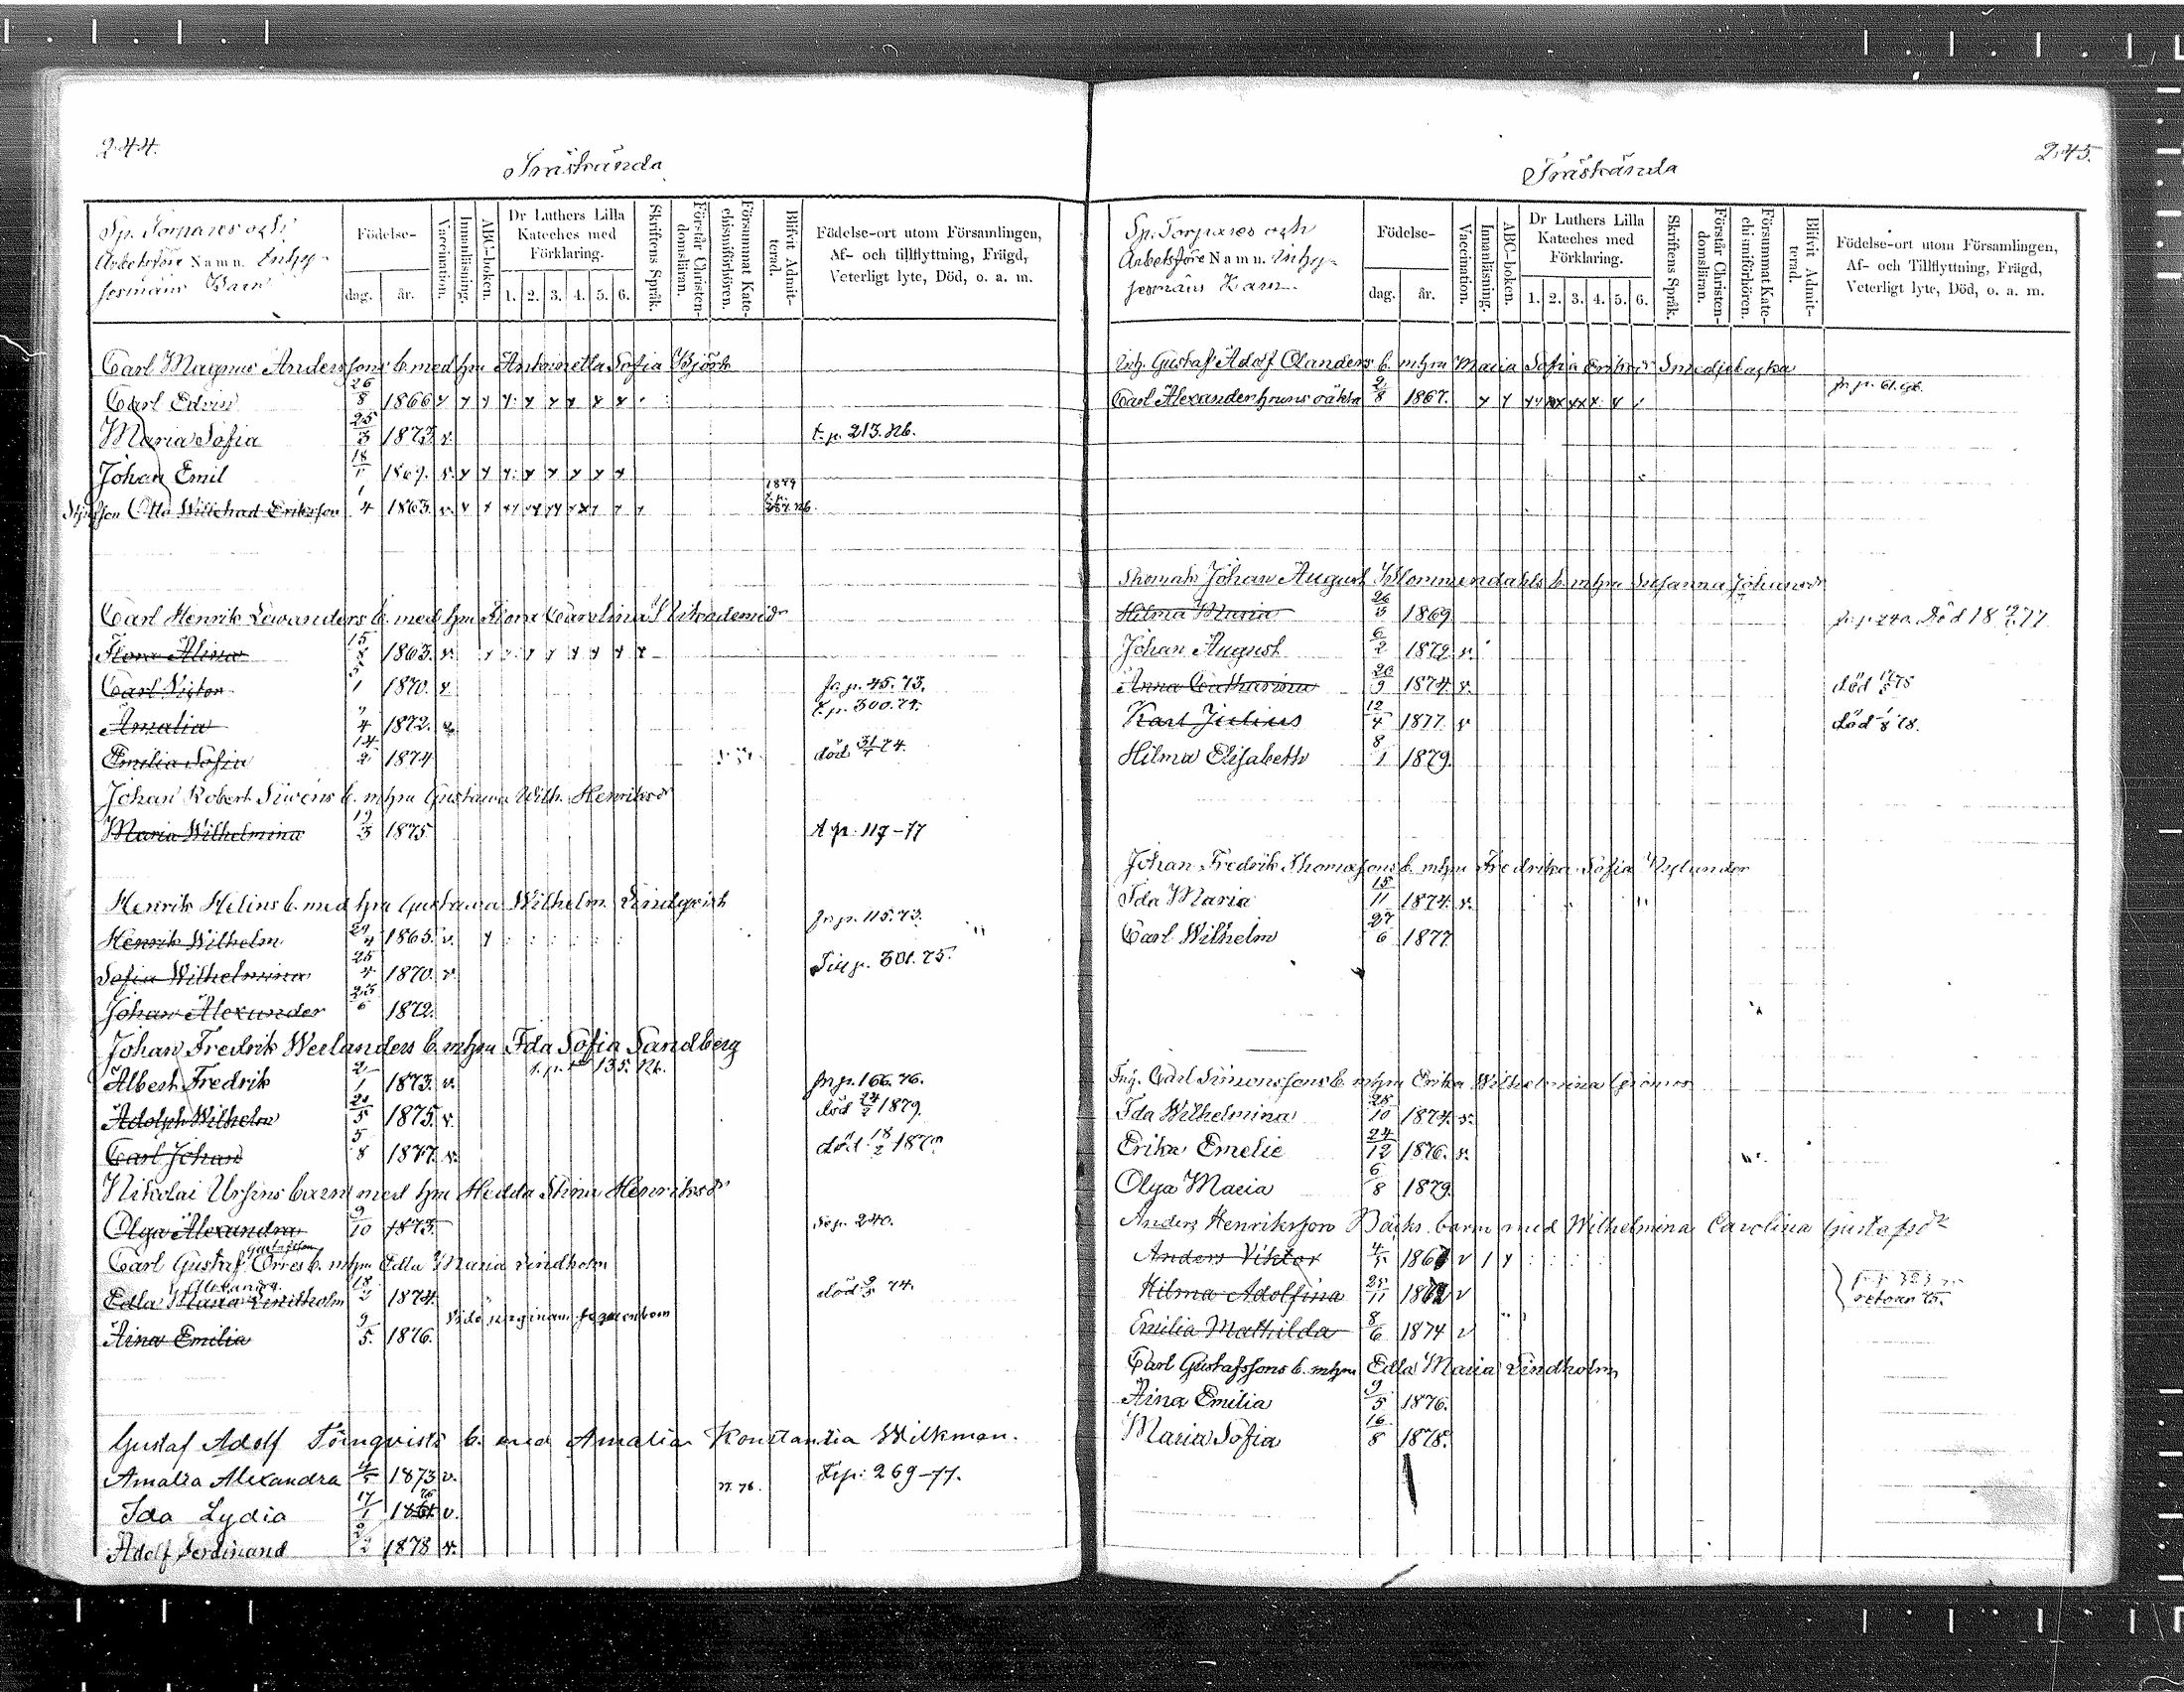 244.
Träskända
Sp. Torpares och
Arbetsföre Namn. Inhy-
sesmäns Barn
Födelse-
dag. år.
Vaccination.
Innanläsning.
ABC-boken.
Dr Luthers Lilla
Kateches med
Förklaring.
1. 2. 3. 4. 5. 6.
Skriftens Språk.
Förstår Christen-
domsläran.
Försummat Kate-
chismiförhören.
Blifvit Admit-
terad.
Födelse-ort utom Församlingen,
Af- och tillflyttning, Frägd,
Veterligt lyte, Död, o. a. m.
Carl Magnus Anderssons b. med hru Antoinetta Sofia Björk
Carl Edvin 26/8 1866 v
Maria Sofia 25/3 1873 v. t. p. 213. 76.
Johan Emil 18/1 1869. v.
Otto Willehad Eriksson 1/4 1863. v. 1879
Carl Henrik Lewanders b. med hru Fiona Carolina Nikodemid:r
Fiona Alina 15 1863. v.
Carl Victor 5/1 1870. v. fr. p. 45. 73.
Amalia 4 1872. v. t. p. 300. 74.
Emilia Sofia 14/2 1874 död 31/7 74
Johan Robert Siwéns b. mhru Gustawa Wilh. Henriksd:r
Maria Wilhelmina 19/3 1875 t p. 117-77
Henrik Helins b. med hru Gustawa Wilhelm. Lindqvist
Henrik Wilhelm 27/4 1865. v. fr. p. 115. 73.
Sofia Wilhelmina 25/4 1870. v. Till p. 301. 75.
Johan Alexander 23/6 1872.
Johan Fredrik Werlanders b. mhru Ida Sofia Sandberg
Albert Fredrik 2/1 1873. v. fr. p. 166. 76.
Adolph Wilhelm 21/5 1875. v. död 24/2 1879.
Carl Johan 5/8 1877. v. död 18/2
Nikolai Ursins barn med hru Hedda Stina Henriksd:r
Olga Alexandra 9/10 1873. Se p. 240.
Carl Gustaf Gustafsson Örres b. mhru Edla Maria Lindholm
Edla Maria Alexandra Lindholm 18/2 1874. död 74.
Aina Emilia 9/5. 1876.
Gustaf Adolf Törnqvists b. med Amalia Konstantia Wilkman.
Amalia Alexandra 4/5 1873 v. 77. 76. Frp: 269-77.
Ida Lydia 17/1 76 v.
Adolf Ferdinand 2/2 1878 v.
245.
Träskända
Sp. Torpares och
Arbetsföre Namn. Inhy-
sesmäns Barn.
Födelse-
dag. år.
Vaccination.
Innanläsning.
ABC-boken.
Dr Luthers Lilla
Kateches med
Förklaring.
1. 2. 3. 4. 5. 6.
Skriftens Språk.
Förstår Christen-
domsläran.
Försummat Kate-
chismiförhören.
Blifvit Admit-
terad.
Födelse-ort utom Församlingen,
Af- och Tillflyttning, Frägd,
Veterligt lyte, Död, o. a. m.
Inh. Gustaf Adolf Olanders b. mhru Maria Sofia Eriksd:r Smedjebacka
Carl Alexander hruns oäkta 2/8 1867. fr. p. 61. 76.
Skomak. Johan August Blommendahls b. mhru Susanna Johansd:r
Hilma Maria 26 1869 fr. p. 240. Död 77
Johan August 6/2 1872. v.
Anna Catharina 20/9 1874. v. död 17/5 75
Karl Julius 12/4 1877. v död 1/8 78.
Hilma Elisabeth 8/1 1879.
Johan Fredrik Thomassons b. mhru Fredrika Sofia Nylander
Ida Maria 15/11 1874. v.
Carl Wilhelm 27/6 1877
Inh. Carl Simonssons b. mhru Erika Wilhelmina Grönroos
Ida Wilhelmina 28/10 1874. v.
Erika Emelie 24/12 1876. v.
Olga Maria 6/8 1879.
Anders Henriksson Bäcks barn med Wilhelmina Carolina Gustafsd:r
Anders Viktor 4/5 v
Hilma Adolfina 25/11 v
Emilia Mathilda 8/6 1874 v
Carl Gustafssons b. mhru Edla Maria Lindholm
Aina Emilia 9/5 1876.
Maria Sofia 16/8 1878.